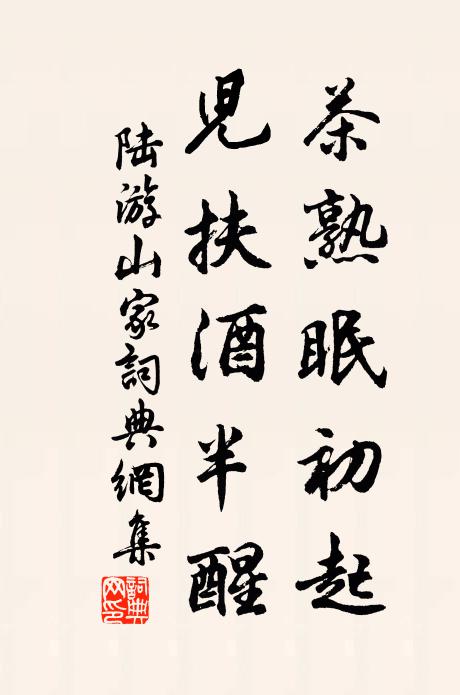 茶熟眠初起
児扶酒半醒
陆游山家詞典網集
詞典
网印